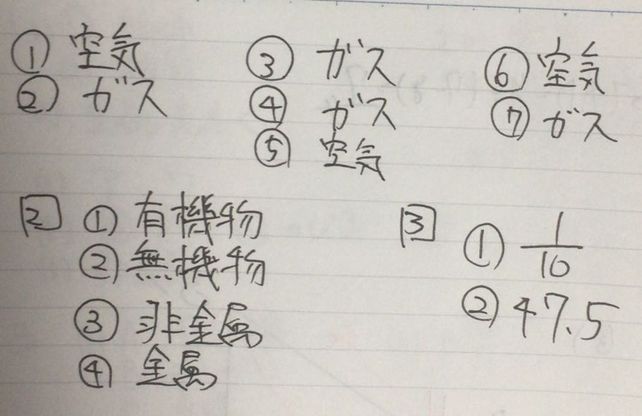 ① 空気
② ガス
③ ガス
④ ガス
⑤ 空気
⑥ 空気
⑦ ガス
2 ① 有機物
② 無機物
③ 非金属
④ 金属
3 ① 1/10
② 47.5